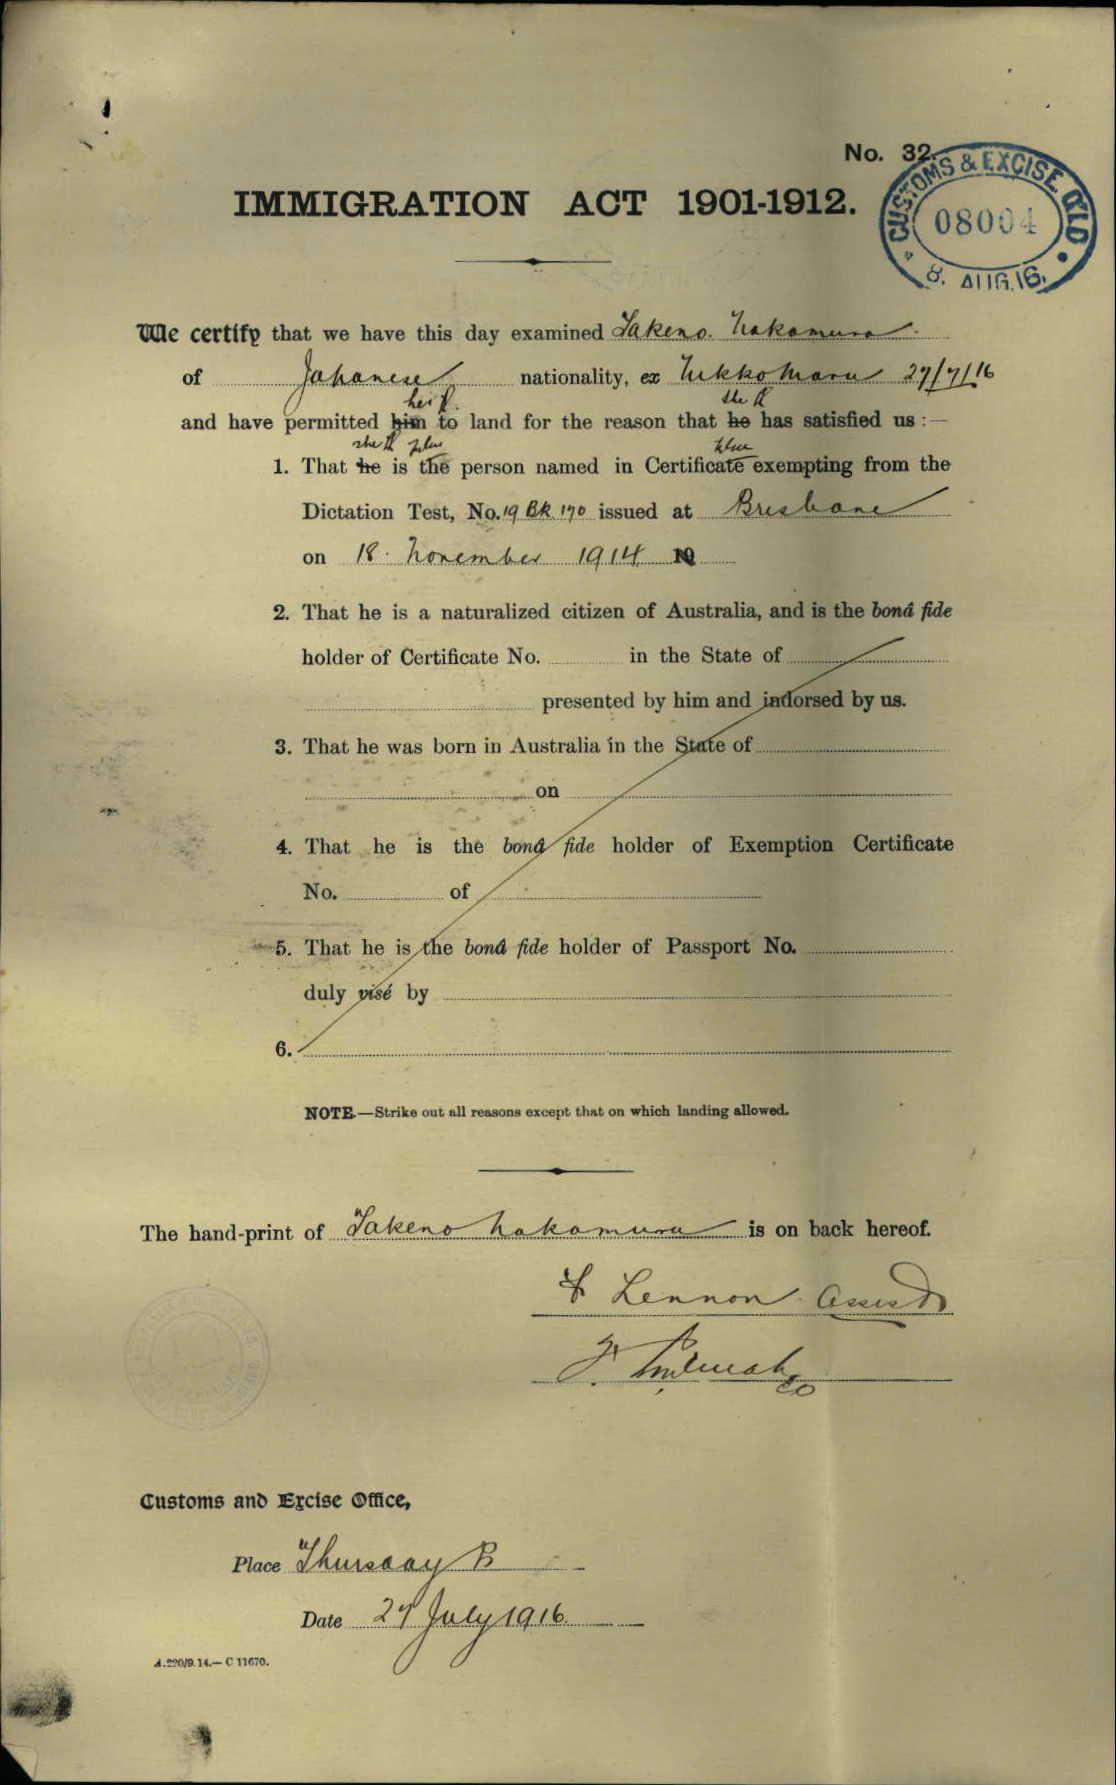 No. 32.
CUSTOMS & EXCISE. Q'LD
08004
8. AUG.16.
IMMIGRATION ACT 1901-1912.
We certify that we have this day examined Takeno. Nakamura.
of Japanese nationality, ex Nikko Maru 27/7/16
her
she
and have permitted him to land for the reason that he has satisfied us :—
she
1. That he is the person named in Certificate exempting from the
Dictation Test, No. 19 BK 170 issued at Brisbane
on 18. November 1914 19
2. That he is a naturalized citizen of Australia, and is the bonâ fide
holder of Certificate No. in the State of
presented by him and indorsed by us.
3. That he was born in Australia in the State of
on
4. That he is the bonâ fide holder of Exemption Certificate
No. of
5. That he is the bonâ fide holder of Passport No.
duly visé by
6.
NOTE.—Strike out all reasons except that on which landing allowed.
The hand-print of Takeno Nakamura is on back hereof.
Lennon
Customs and Excise Office,
Place Thursday
Date 27 July 1916.
A.220/9.14.—C 11670.